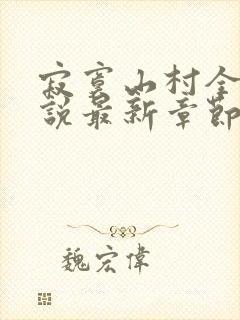 寂寞山村全
說最新章節
魏宏偉